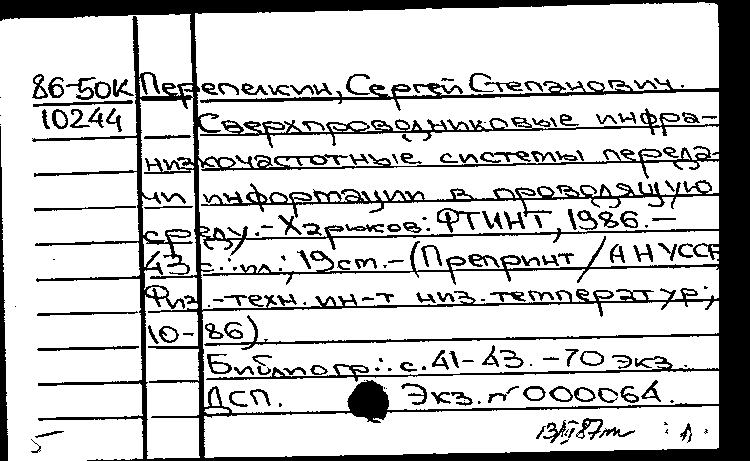 86-50к Перепелкин, Сергей Степанович.
10244 Сверхпроводниковые инфра-
низкочастотные системы переда-
чи информации в проводящую
среду. - Харьков: ФТИНТ, 1986. -
43 с.: ил.; 19 см. - (Препринт / АН УССР,
Физ.-техн. ин-т низ. температур;
10-86).
Библиогр.: с. 41-43. - 70 экз.
ДСП. Экз. № 000064.
5